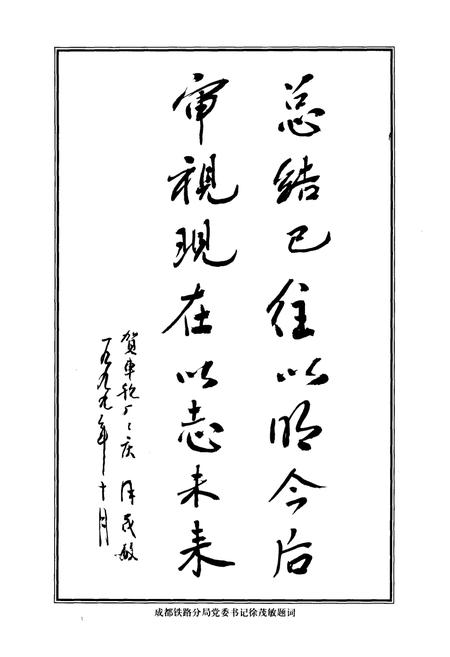 总结已往以明今后
审视现在以志未来
贺车轮厂厂庆 徐茂敏
一九九九年十月
成都铁路分局党委书记徐茂敏题词